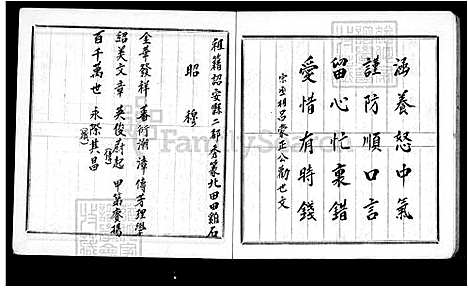 涵養怒中氣
謹防順口言
留心忙裏錯
愛惜有時錢
宋丞相呂蒙正公勸世文
祖籍詔安縣二都秀篆北田田雞石
昭穆
金華發祥 蕃衍潮漳 傳芳理學
紹美文章 英俊蔚起 甲第齊揚
百千萬世 永際其昌
FamilySearch